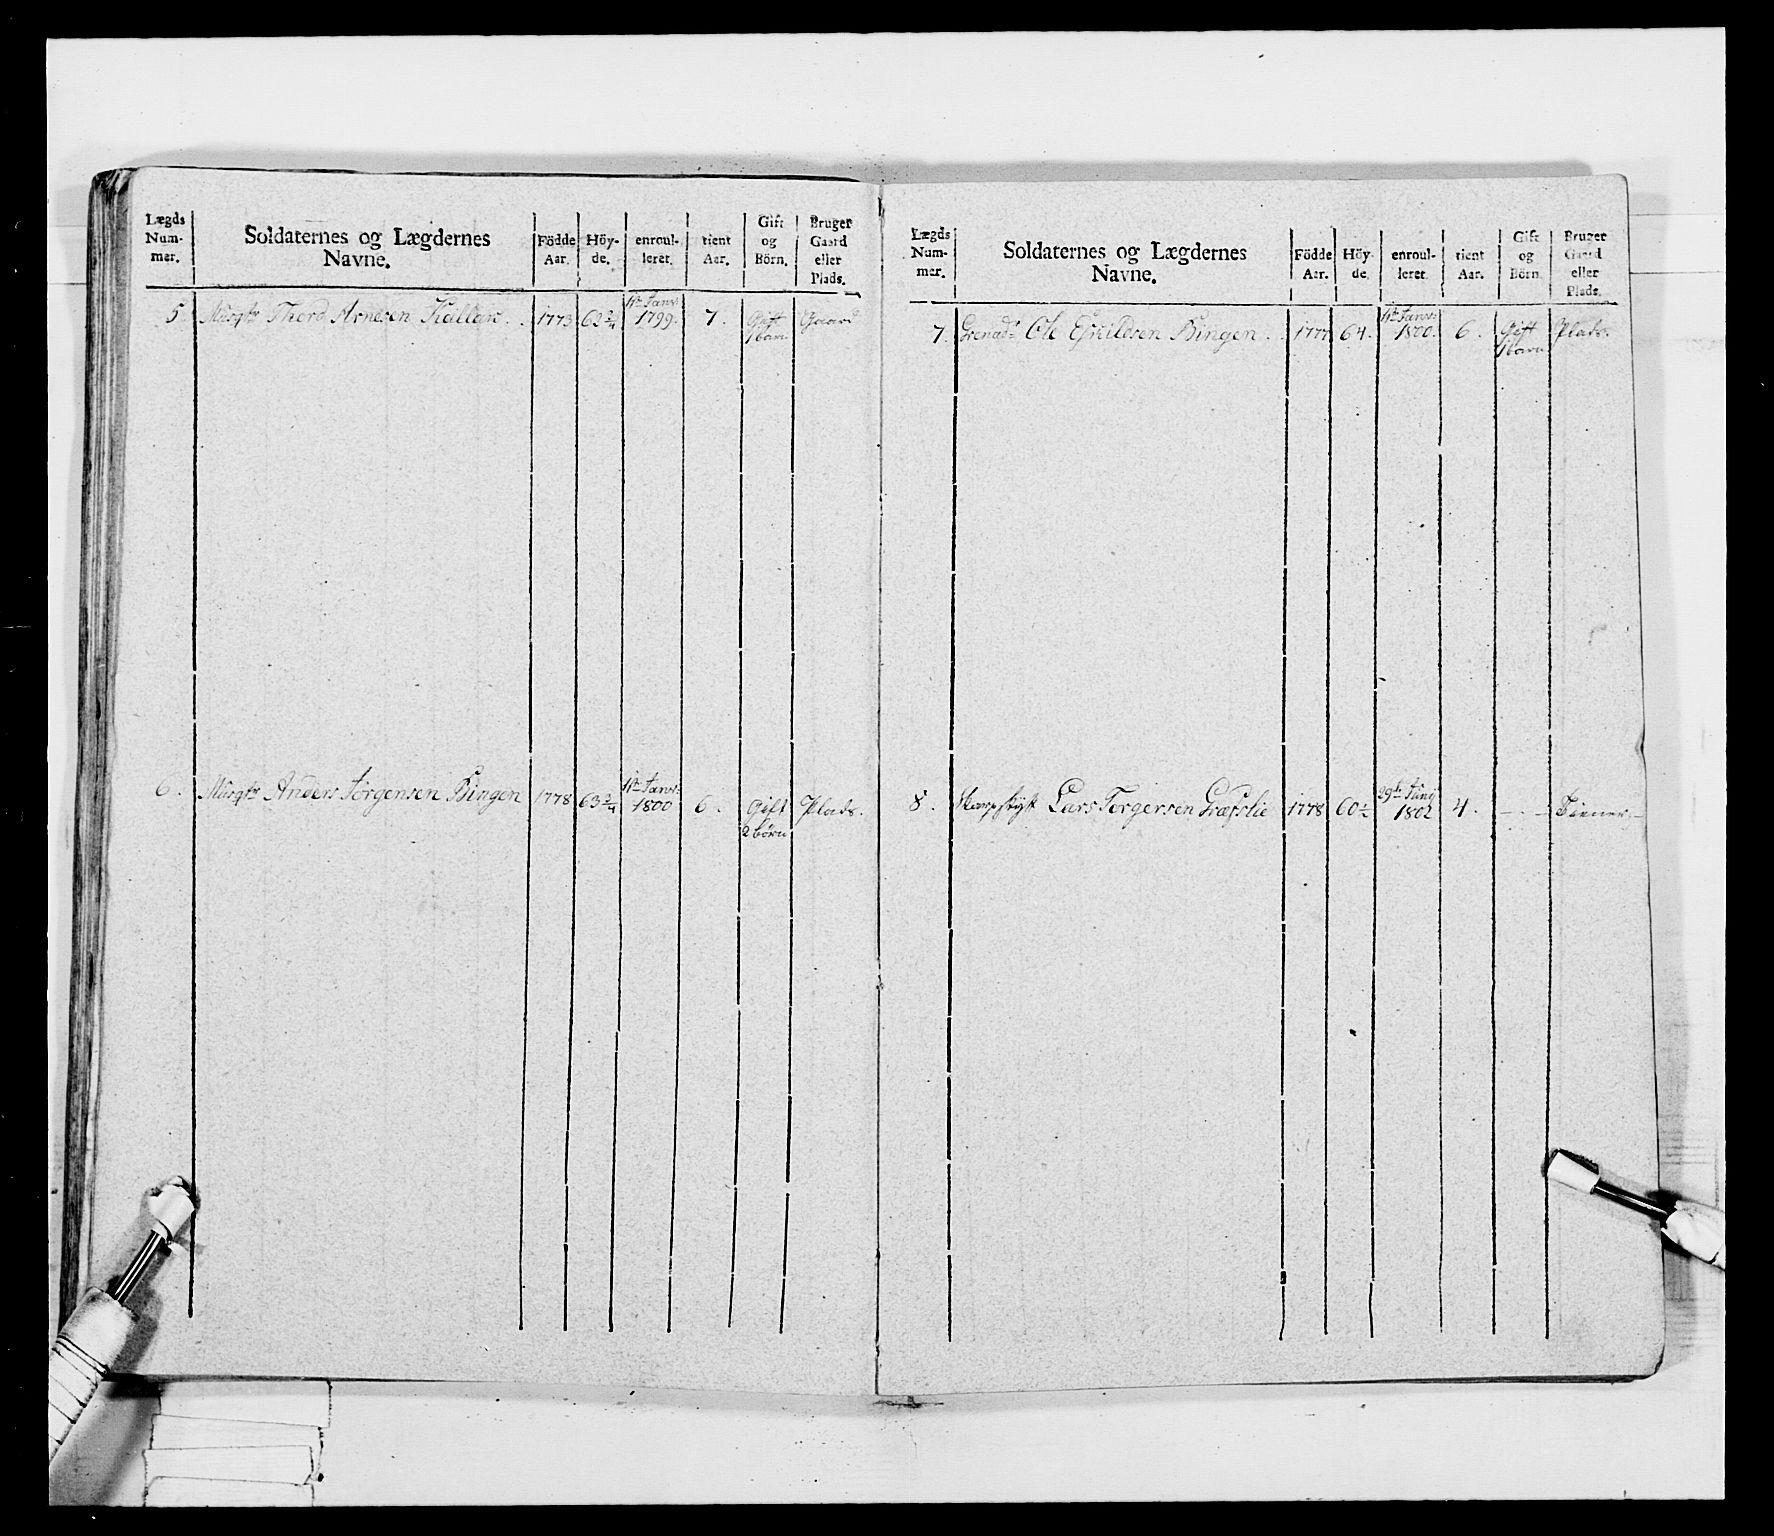 Lægds Num- mer. | Soldaternes og Lægdernes Navne. | Födde Aar. | Höy- de. | enroul- leret. | tient Aar. | Gift og Börn. | Bruger Gaard eller Plads.
5 Musqtr Thord Arnesen 1773 62 3/4 1799. 7. Gift Gaard
1 barn
6. Musqtr Anders Jörgensen Bingen 1778 63 3/4 1800 6. Gift Plads.
2 börn
Lægds Num- mer. | Soldaternes og Lægdernes Navne. | Födde Aar. | Höy- de. | enroul- leret. | tient Aar. | Gift og Börn. | Bruger Gaard eller Plads.
7. Grenadr Ole Eskildsen Bingen. 1777 64. 1800. 6. Gift Plads.
1 barn
8. Lars Torgersen 1778 60 1/2 29de Junij 1802 4. - . - Tiener. -